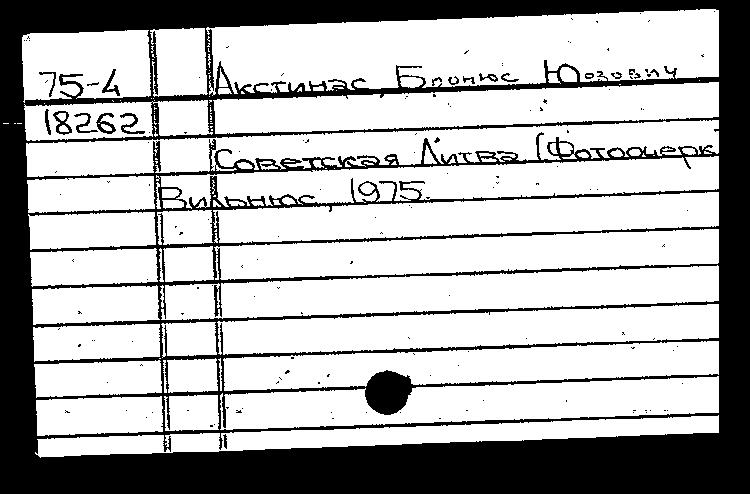 75-4 Акстинас, Бронюс Юозович
18262
Советская Литва (Фотоочерк
Вильнюс, 1975.